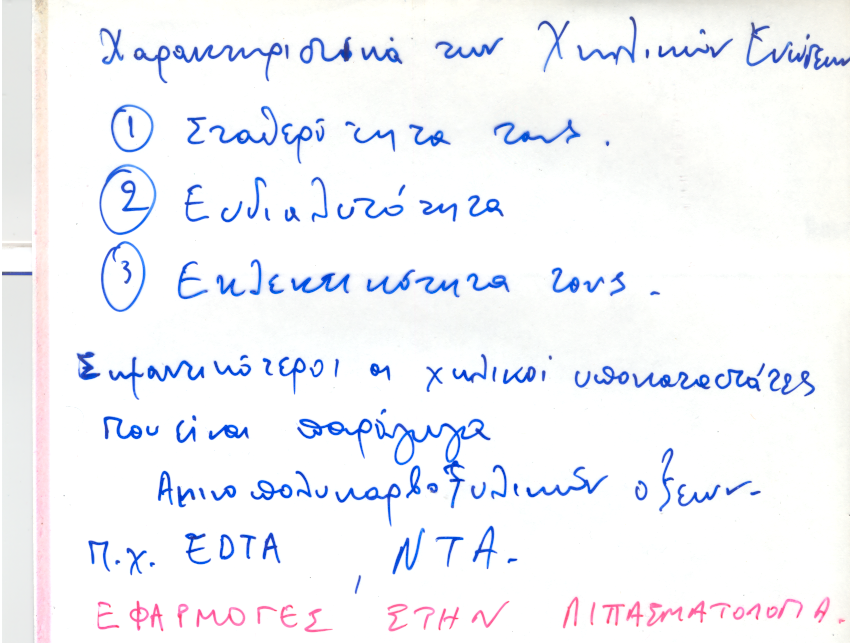 Χαρακτηριστικά των Χηλικών Ενώσεων
① Σταθερότητα τους.
② Ευδιαλυτότητα
③ Εκλεκτικότητα τους.
Σημαντικότεροι οι χηλικοί υποκαταστάτες
που είναι παράγωγα
Αμινοπολυκαρβοξυλικών οξεων.
π.χ. EDTA, NTA.
ΕΦΑΡΜΟΓΕΣ ΣΤΗΝ ΛΙΠΑΣΜΑΤΟΛΟΓΙΑ.